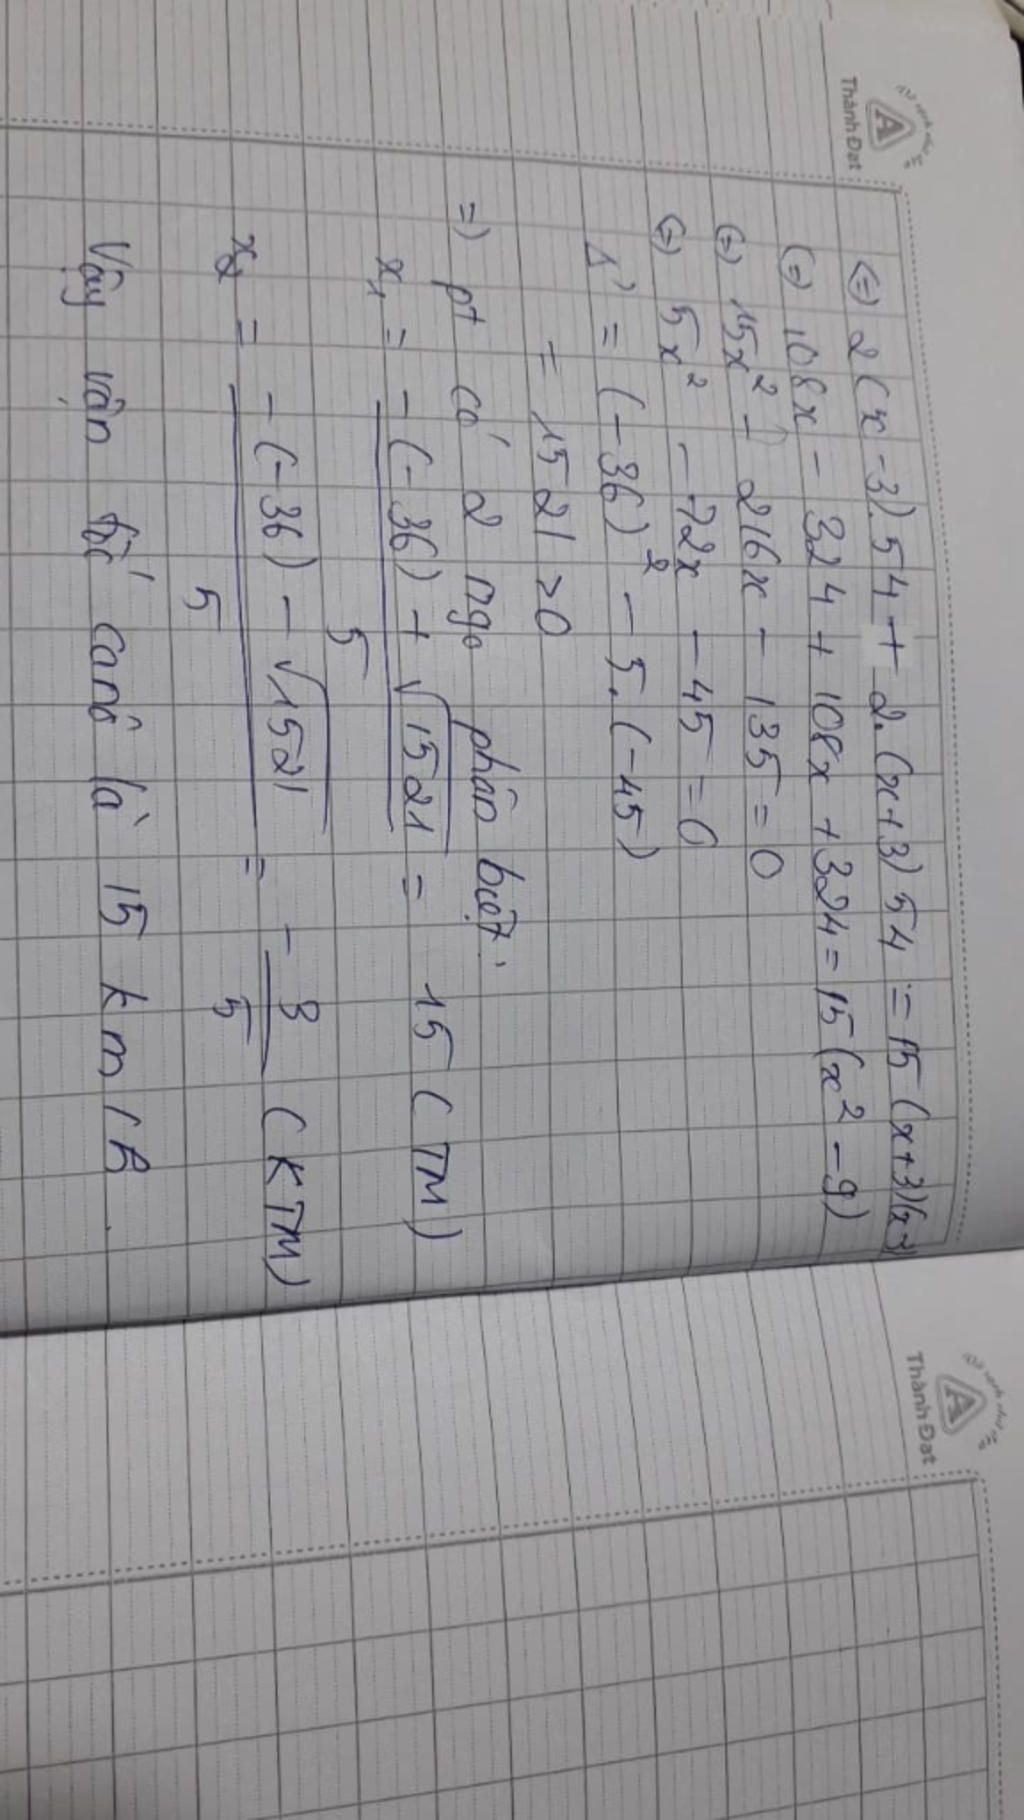 Thành Đạt
(=) 2(x-3).54 + 2.(x+3) 54 = 15 (x+3)(x-3)
(=) 108x - 324 + 108x + 324 = 15 (x² - 9)
(=) 15x² - 216x - 135 = 0
(=) 5x² - 72x - 45 = 0
Δ' = (-36)² - 5.(-45)
= 1521 > 0
=) pt có 2 ngo phân biệt.
x₁ = -(-36) + √1521 / 5 = 15 (TM)
x₂ = -(-36) - √1521 / 5 = - 3/5 (KTM)
Vậy vận tốc canô là 15 km/h.
Thành Đạt